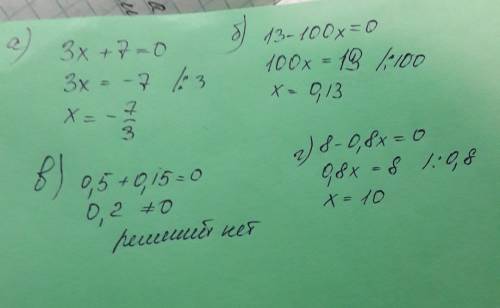 а) 3x + 7 = 0
3x = -7 /:3
x = -7/3
б) 13 - 100x = 0
100x = 13 /:100
x = 0,13
в) 0,5 + 0,15 = 0
0,2 ≠ 0
решений нет
г) 8 - 0,8x = 0
0,8x = 8 /:0,8
x = 10